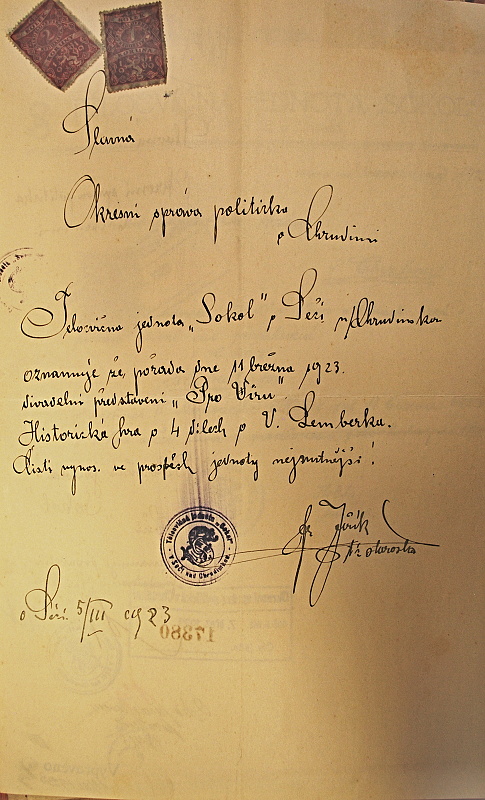 Slavná
Okresní správa politická
v Chrudimi
Tělocvičná jednota „Sokol" v Seči n/Chrudimkou
oznamuje že, pořádá dne 11 března 1923.
divadelní představení „Pro Víru".
Historická hra o 4 dílech o V. Pemberka.
Čistý výnos. ve prospěch jednoty nejsmutnější!
Tělocvičná jednota „Sokol"
v Seči nad Chrudimkou.
t.č. starosta
v Seči. 5/III 1923
17380